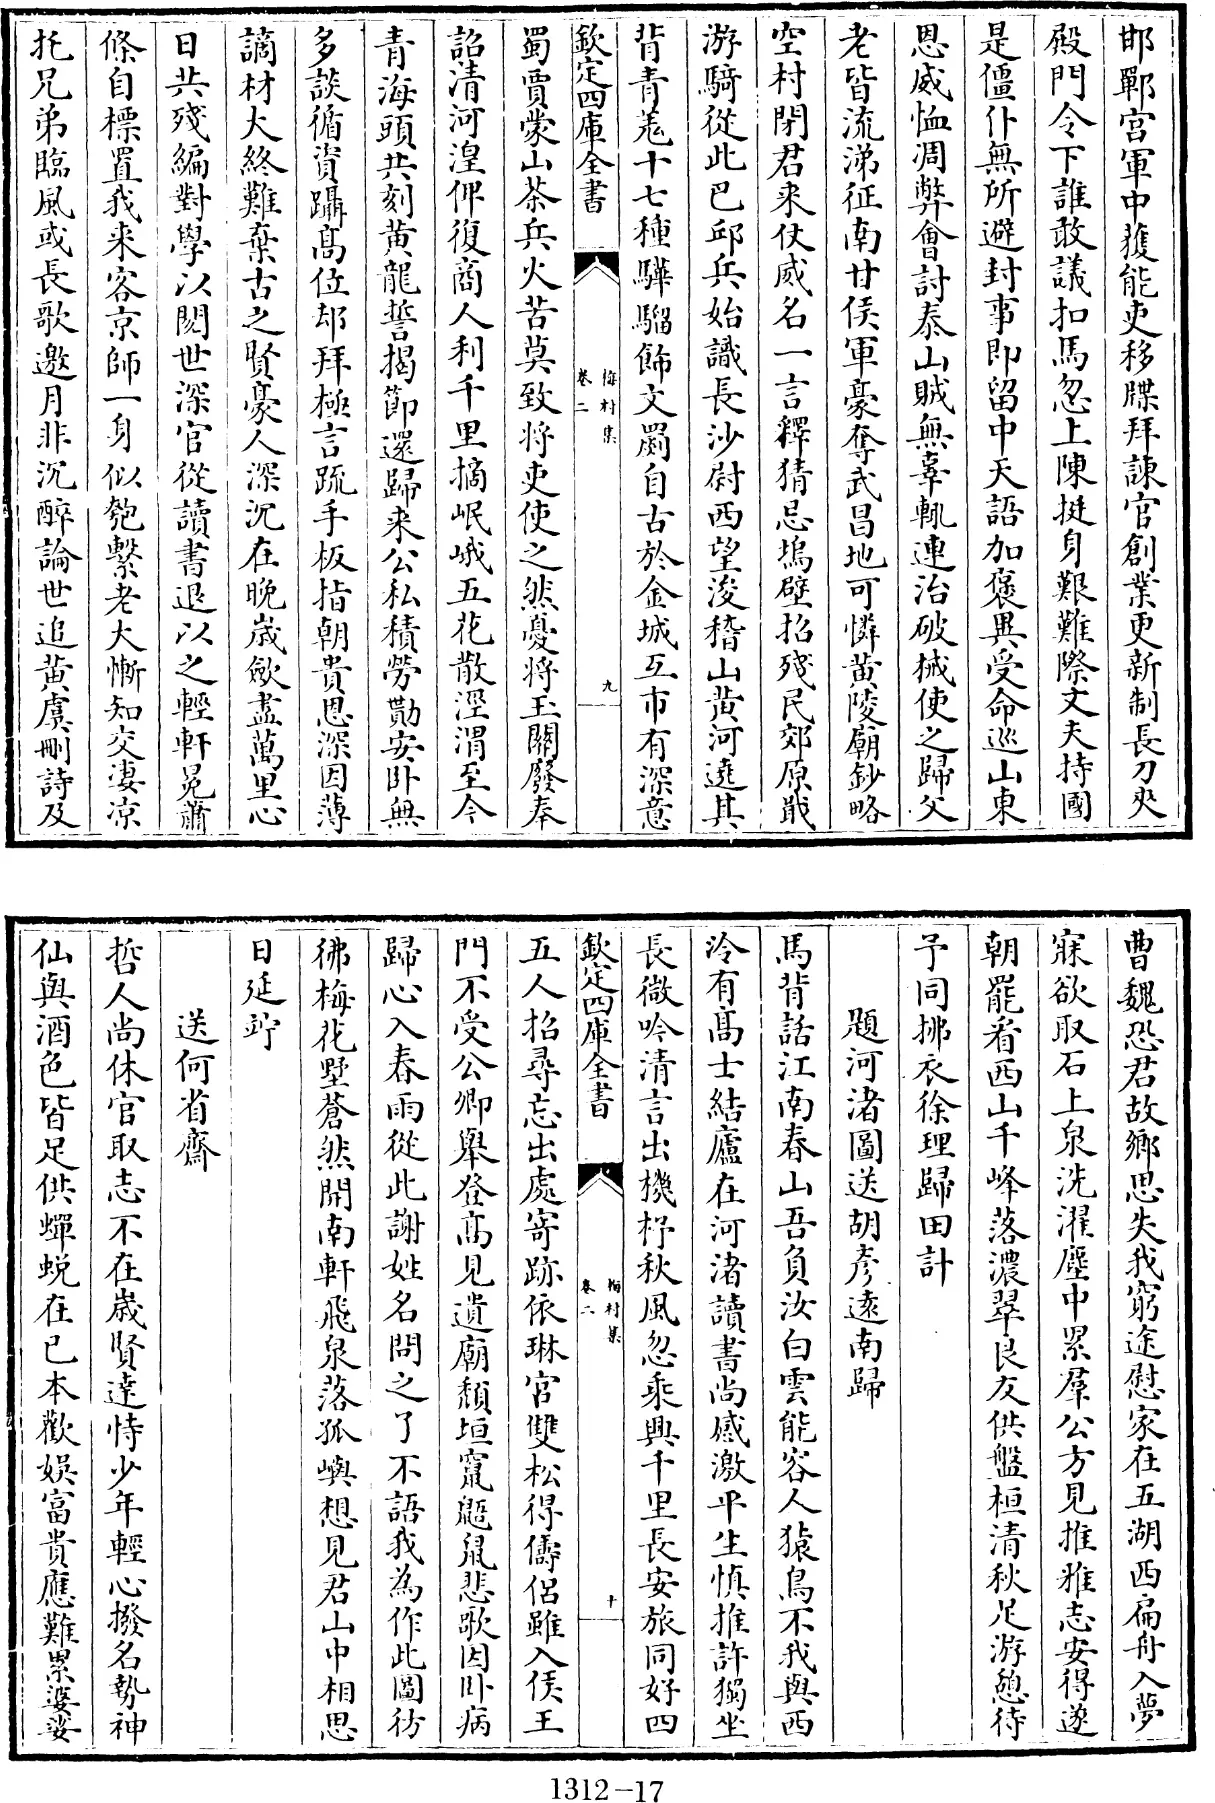 邯鄲宮軍中獲能吏移牒拜諫官創業更新制長刀夾
殿門令下誰敢議扣馬忽上陳挺身艱難際丈夫持國
是僵仆無所避封事即留中天語加褒異受命巡山東
恩威恤凋弊會討泰山賊無辜輒連治破械使之歸父
老皆流涕征南甘侯軍豪奪武昌地可憐黄陵廟鈔略
空村閉君来仗威名一言釋猜忌塢壁招殘民郊原戢
游騎從此巴邱兵始識長沙尉西望浚稽山黄河遶其
背青羌十七種驊騮飾文罽自古於金城互市有深意
欽定四庫全書
梅村集
卷二
九
蜀賈蒙山茶兵火苦莫致将吏使之然憂将玉關廢奉
詔清河湟俾復商人利千里摘岷峨五花散涇渭至今
青海頭共刻黄龍誓揭節還歸来公私積勞勩安卧無
多談循資躡髙位却拜極言疏手板指朝貴恩深因薄
謫材大終難棄古之賢豪人深沉在晩歳歛盡萬里心
日共殘編對學以閲世深官從讀書退以之輕軒冕蕭
條自標置我来客京師一身似匏繫老大慚知交淒凉
托兄弟臨風或長歌邀月非沉醉論世追黄虞刪詩及
曹魏恐君故鄉思失我窮途慰家在五湖西扁舟入夢
寐欲取石上泉洗濯塵中累羣公方見推雅志安得遂
朝罷看西山千峰落濃翠良友供盤桓清秋足游憩待
予同拂衣徐理歸田計
題河渚圖送胡彥遠南歸
馬背話江南春山吾負汝白雲能容人猿鳥不我與西
泠有髙士結廬在河渚讀書尚感激平生慎推許獨坐
長微吟清言出機杼秋風忽乘興千里長安旅同好四
欽定四庫全書
梅村集
卷二
十
五人招尋忘出處寄跡依琳宮雙松得儔侶雖入侯王
門不受公卿舉登髙見遺廟頽垣竄鼯鼠悲歌因卧病
歸心入春雨從此謝姓名問之了不語我為作此圖彷
彿梅花墅蒼然開南軒飛泉落孤嶼想見君山中相思
日延竚
送何省齋
哲人尚休官取志不在歳賢達恃少年輕心撥名勢神
仙與酒色皆足供蟬蛻在已本歡娛富貴應難累婆娑
1312-17